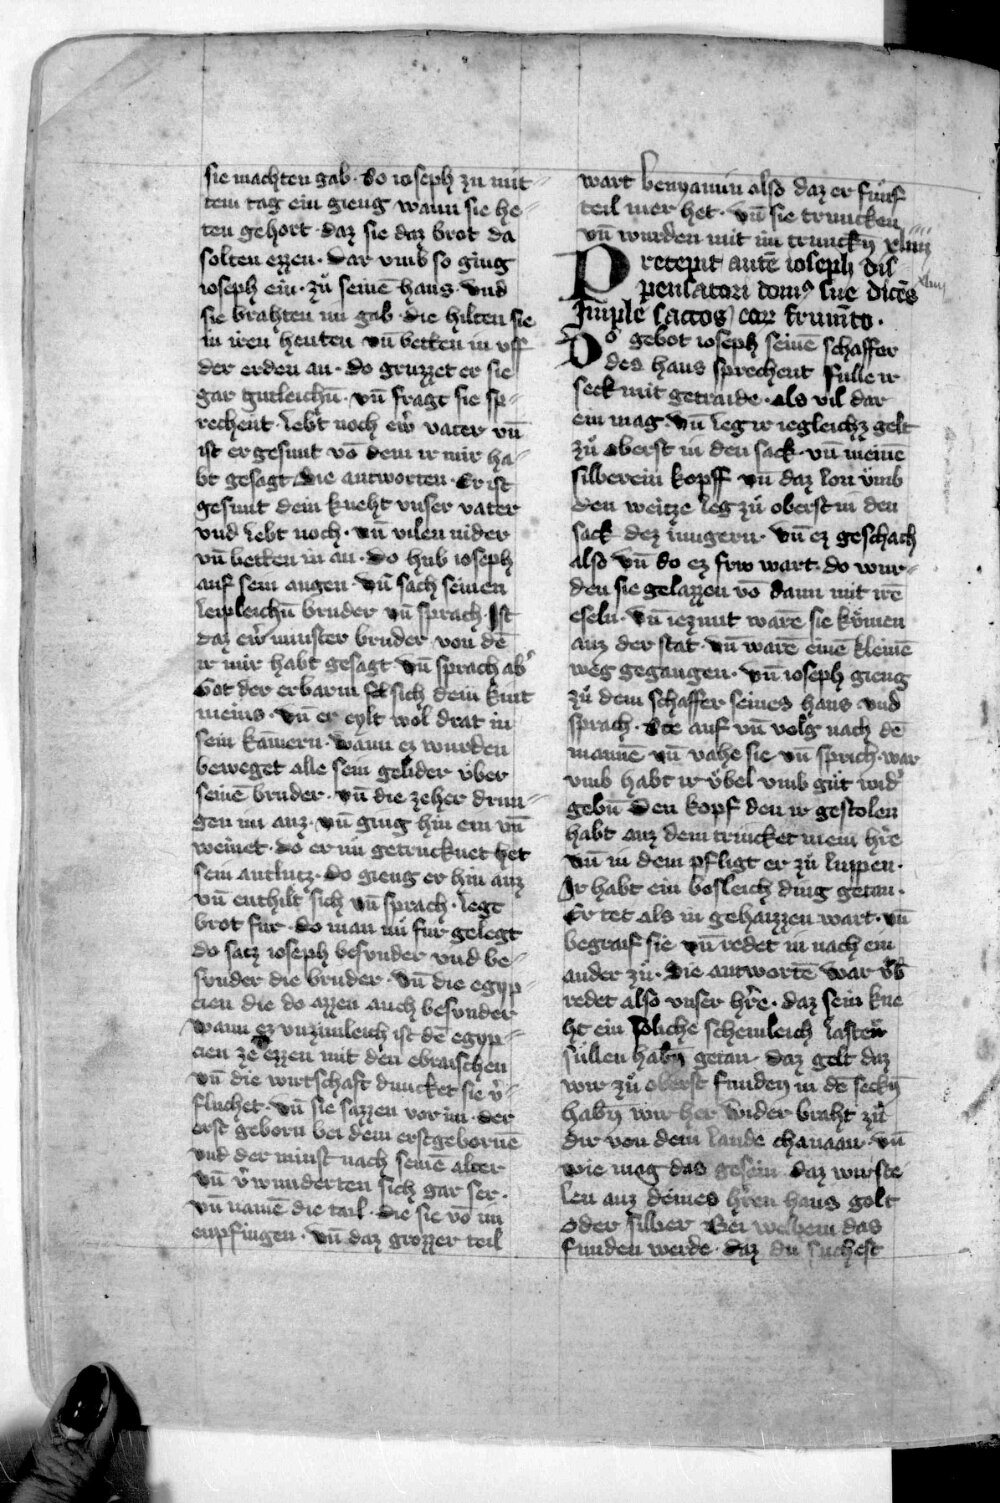 sie machten gab · do ioseph zu mit⸗
tem tag ein gieng wann sie he⸗
ten gehort · daz sie daz brot da
solten ezzen · Dar vmb so ging
ioseph ein · zů seinē haus · vnd
sie brahten im gab · die hilten sie
in iren henten vn̄ betten in vff
der erden an · do gruzzet er sie
gar gutleichn̄ · vn̄ fragt sie sp⸗
rechent · Lebt noch ewr̄ vater vn̄
ist er gesunt vō dem ir mir ha⸗
bt gesagt Die antworten · Er ist
gesunt dein kneht vnser vater
vnd lebt noch · vn̄ vilen nider
vn̄ betten in an · do hub ioseph
auf sein augen · vn̄ sach seinen
leipleichn̄ bruder vn̄ sprach · Ist
daz ewr̄ minster bruder von dē
ir mir habt gesagt vn̄ sprach ab̾
Got der erbarm sich dein kint
meins · vn̄ er eylt wol drat in
sein kam̄ern · wann ez wurden
beweget alle sein gelider vͤber
seinē bruder · vn̄ die zeher drun⸗
gen im auz · vn̄ ging hin ein vn̄
weinet · do er im getrucknet het
sein antlutz · do gieng er hin auz
vn̄ enthilt sich vn̄ sprach · Legt
brot fur · do man nů fur gelegt
do satz ioseph besvnder vnd be⸗
svnder die bruder · vn̄ die egyp⸗
cien die do azzen auch besvnder
wann ez vnzimleich ist dē egyp⸗
cien ze ezzen mit den ebraischen
vn̄ die wirtschaft duncket sie v̾⸗
fluchet · vn̄ sie sazzen vor im · der
erst geborn bei dem erstgebornē
vnd der minst nach seinē alter
vn̄ v̾wunderten sich gar ser ·
vn̄ namē die tail · die sie vō im
enpfingen · vn̄ daz grozzer teil
wart benyamin also daz er funf
teil mer het · vn̄ sie truncken
vn̄ wurden mit im trunckn̄ xliiii
Precepit autē ioseph dis
pensatori dom⁹ sue dicēs xliiij
Imple saccos eor̄ frumēto ·
Do gebot ioseph seinē schaffer
des haus sprechent Fulle ir
seck mit getraide · als vil dar
ein mag · vn̄ leg ir iegleichz gelt
zů oberst in den sack · vn̄ meinē
silberein kopff vn̄ daz lon vͤmb
den weitze leg zů oberst in den
sack dez iungern · vn̄ ez geschach
also vn̄ do ez frw wart · do wur⸗
den sie gelazzen vō dann mit irē
eseln · vn̄ iezunt warē sie kömen
auz der stat · vn̄ warē einē kleinē
weg gegangen · vn̄ ioseph gieng
zů dem schaffer seines haus · vnd
sprach · Ste auf vn̄ volg nach dē
mannē vn̄ vahe sie vn̄ sprich · war
vmb habt ir vͤbel vmb gůt wid̾
gebn̄ Den kopf den ir gestolen
habt auz dem trincket mein hr̄e
vn̄ in dem pfligt er zů luppen ·
Ir habt ein bosleich ding getan ·
Er tet als in gehaizzen wart · vn̄
begraif sie vn̄ redet in nach ein
ander zů · Die antwortē war vͤb̄
redet also vnser hr̄e · daz sein kne
ht ein soliche schemleich laster
sullen habn̄ getan · daz gelt daz
wir zů oberst funden in dē seckn̄
habn̄ wir her wider braht zů
dir von dem lande chanaan · vn̄
wie mag das gesein daz wir ste
len auz deines hr̄en haus golt
oder silber Bei welhem das
funden werde · daz du suchest